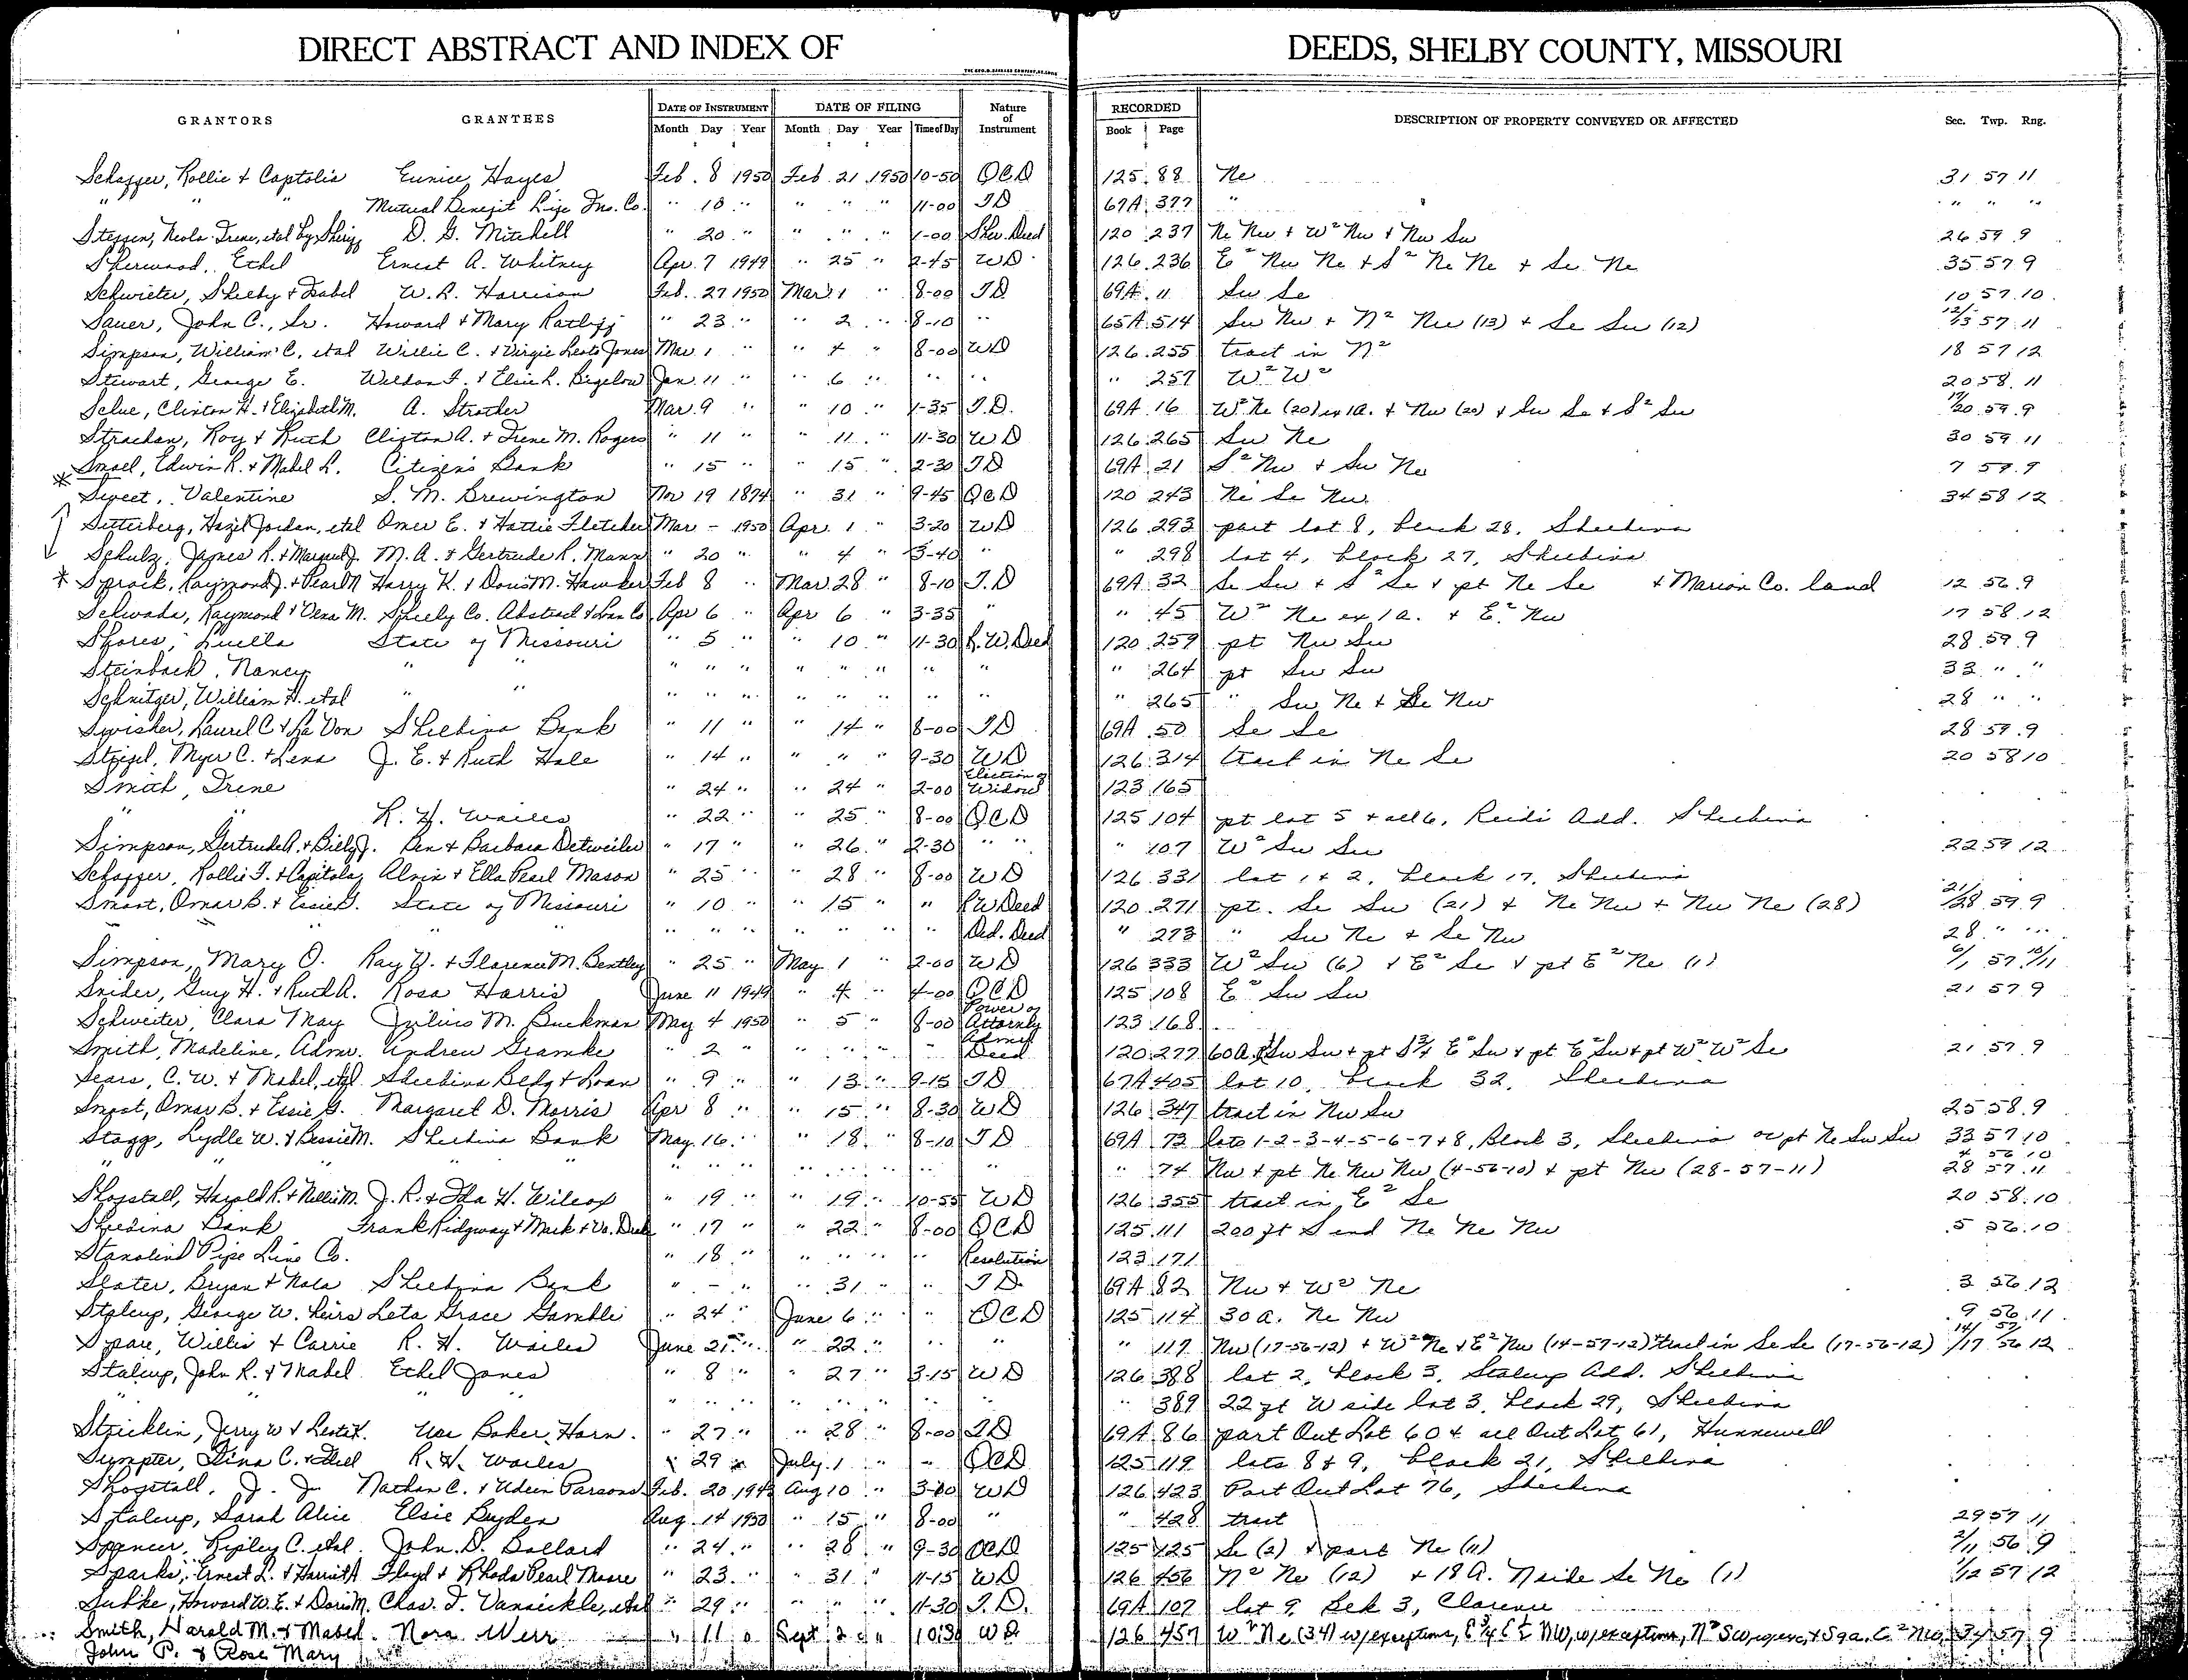 DIRECT ABSTRACT AND INDEX OF DEEDS, SHELBY COUNTY, MISSOURI
GRANTORS GRANTEES DATE OF INSTRUMENT Month Day Year DATE OF FILING Month Day Year Time of Day Nature of Instrument RECORDED Book Page DESCRIPTION OF PROPERTY CONVEYED OR AFFECTED Sec. Twp. Rng.
Schaffer, Rollie + Captolia Eunice Hayes Feb. 8 1950 Feb 21 1950 10-50 QCD 125 88 Ne 31 57 11
" " " Mutual Benefit Life Ins. Co. " 18 " " " " 11-00 TD 69A 377 " " " "
Steffen, Neola Irene, etal by Sheriff D. G. Mitchell " 20 " " " " 1-00 Sher. Deed 120 237 Ne Nw + W² Nw + Nw Sw 26 59 9
Sherwood, Ethel Ernest A. Whitney Apr. 7 1949 " 25 " 2-45 WD 126 236 E² Nw Ne + S² Ne Ne + Se Ne 35 57 9
Schwieter, Shelby + Isabel W. R. Harrison Feb. 27 1950 Mar 1 " 8-00 TD 69A 11 Sw Se 10 57 10
Sauer, John C., Sr. Howard + Mary Ratliff " 23 " " 2 " 8-10 " 65A 514 Sw Nw + N² Nw (13) + Se Sw (12) 12/13 57 11
Simpson, William C. etal Willie C. + Virgie Leota Jones Mar 1 " " 4 " 8-00 WD 126 255 tract in N² 18 57 12
Stewart, George E. Weldon F. + Elsie L. Bigelow Jan. 11 " " 6 " " " " 257 W² W² 20 58 11
Selue, Clinton H. + Elizabeth M. A. Strother Mar. 9 " " 10 " 1-35 T.D. 69A 16 W² Ne (20) ex 1a. + Nw (20) + Sw Se + S² Sw 17/20 59 9
Strachan, Roy + Ruth Clifton A. + Irene M. Rogers " 11 " " 11 " 11-30 WD 126 265 Sw Ne 30 59 11
* Smoel, Edwin R. + Mabel L. Citizens Bank " 15 " " 15 " 2-30 TD 69A 21 S² Nw + Sw Ne 7 59 9
Sweet, Valentine S. M. Brewington Nov 19 1874 " 31 " 9-45 QCD 120 243 Ne Se Nw 34 58 12
Setterberg, Hazel Jordan, etal Omer E. + Hattie Fletcher Mar - 1950 Apr 1 " 3-20 WD 126 293 part lot 8, block 28, Shelbina
Schulz, James R. + Margaret J. M. A. + Gertrude R. Mann " 20 " " 4 " 3-40 " " 298 lot 4, block 27, Shelbina
* Sprock, Raymond J. + Pearl N Harry K. + Doris M. Hawker Feb 8 " Mar 28 " 8-10 T.D 69A 32 Se Sw + S² Se + pt Ne Se + Marion Co. land 12 56 9
Schwada, Raymond + Vena M. Shelby Co. Abstract + Loan Co. Apr 6 " Apr 6 " 3-35 " " 45 W² Ne ex 1a. + E² Nw 17 58 12
Shores, Luella State of Missouri " 5 " " 10 " 11-30 R.W. Deed 120 259 pt Nw Sw 28 59 9
Steinbach, Nancy " " " " " " " " " " " 264 pt Sw Sw 33 " "
Schnitzer, William H. etal " " " " " " " " " " " 265 " Sw Ne + Se Nw 28 " "
Swisher, Laurel C + La Von Shelbina Bank " 11 " " 14 " 8-00 TD 69A 50 Se Se 28 59 9
Steigel, Myer C. + Lena J. E. + Ruth Hale " 14 " " " " 9-30 WD 126 314 tract in Ne Se 20 58 10
Smith, Irene " 24 " " 24 " 2-00 Election of Widow 123 165
" " R. H. Wailes " 22 " " 25 " 8-00 QCD 125 104 pt lot 5 + all 6, Reids Add. Shelbina
Simpson, Gertrude A. + Billy J. Ben + Barbara Detweiler " 17 " " 26 " 2-30 " " 107 W² Sw Sw 22 59 12
Schaffer, Rollie F. + Capitola Alvin + Ella Pearl Mason " 25 " " 28 " 8-00 WD 126 331 lot 1 + 2, block 17, Shelbina
Smoot, Omar B. + Essie G. State of Missouri " 10 " " 15 " " R W Deed 120 271 pt. Se Sw (21) + Ne Nw + Nw Ne (28) 21/28 59 9
" " " " " " " " " " " Ded. Deed " 273 " Sw Ne + Se Nw 28 " "
Simpson, Mary O. Ray W. + Florence M. Bentley " 25 " May 1 " 2-00 WD 126 333 W² Sw (6) + E² Se + pt E² Ne (1) 6/1 57 10/11
Snider, Guy H. + Ruth A. Rosa Harris June 11 1949 " 4 " 4-00 QCD 125 108 E² Sw Sw 21 57 9
Schweiter, Clara May Julius M. Buckman May 4 1950 " 5 " 8-00 Power of Attorney 123 168
Smith, Madeline, Admr. Andrew Gramke " 2 " " " " " Admr Deed 120 277 60 A. Sw Sw + pt S¾ E² Sw + pt E² Sw + pt W² W² Se 21 57 9
Sears, C. W. + Mabel, etal Shelbina Bldg + Loan " 9 " " 13 " 9-15 TD 67A 405 lot 10, block 32, Shelbina
Smoot, Omar B. + Essie G. Margaret D. Morris Apr 8 " " 15 " 8-30 WD 126 347 tract in Nw Sw 25 58 9
Stagg, Lydle W. + Bessie M. Shelbina Bank May 16 " " 18 " 8-10 TD 69A 73 lots 1-2-3-4-5-6-7+8, Block 3, Shelbina or pt Ne Sw Sw 33 57 10
" " " " " " " " " " " " " 74 Nw + pt Ne Nw Nw (4-56-10) + pt Nw (28-57-11) 4 56 10 28 57 11
Shofstall, Harold R. + Nellie M. J. R. + Ida H. Wilcox " 19 " " 19 " 10-55 WD 126 355 tract in E² Se 20 58 10
Shelbina Bank Frank Ridgway + Meek + Va. Dale " 17 " " 22 " 8-00 QCD 125 111 200 ft S end Ne Ne Nw 5 56 10
Stanolind Pipe Line Co. " 18 " " " " " Resolution 123 171
Slater, Bryan + Nola Shelbina Bank " - " " 31 " " TD 69A 82 Nw + W² Ne 3 56 12
Stalcup, George W. heirs Leta Grace Gamble " 24 " June 6 " " QCD 125 114 30 a. Ne Nw 9 56 11
Spare, Willis + Carrie R. H. Wailes June 21 " " 22 " " " " 117 Nw (17-56-12) + W² Ne + E² Nw (14-57-12) tract in Se Se (17-56-12) 14/17 57/56 12
Stalcup, John R. + Mabel Ethel Jones " 8 " " 27 " 3-15 WD 126 388 lot 2, block 3, Stalcup Add. Shelbina
" " " " " " " " " " " " " 389 22 ft W side lot 3, block 29, Shelbina
Stricklin, Jerry W + Leota K. Uce Baker Horn. " 27 " " 28 " 8-00 TD 69A 86 part Out Lot 60 + all Out Lot 61, Hunnewell
Sumpter, Tina C. + Thell R. H. Wailes " 29 " July 1 " " QCD 125 119 lots 8 + 9, block 21, Shelbina
Shofstall, J. J. Nathan C. + Udein Parsons Feb. 20 1943 Aug 10 " 3-00 WD 126 423 Part Out Lot 76, Shelbina
Stalcup, Sarah Alice Elsie Byden Aug. 14 1950 " 15 " 8-00 " " 428 tract 29 57 11
Spencer, Ripley C. etal. John D. Ballard " 24 " " 28 " 9-30 QCD 125 125 Se (2) + part Ne (11) 2/11 56 9
Sparks, Ernest L. + Harriet A Floyd + Rhoda Pearl Moore " 23 " " 31 " 11-15 WD 126 456 N² Ne (12) + 18 A. N side Se Ne (1) 1/12 57 12
Subke, Howard W. E. + Doris M. Chas. T. Vansickle, etal " 29 " " " " 11-30 T.D. 69A 107 lot 9, Belk 3, Clarence
Smith, Harold M. + Mabel. Nora Weir " 11 " Sept 2 " 10:30 WD 126 457 W² Ne (34) w/exceptions, E¾ E½ NW, w/exceptions, N² SW, w/exc, + 5 9a. E² NW, 34 57 9
John P. + Rose Mary